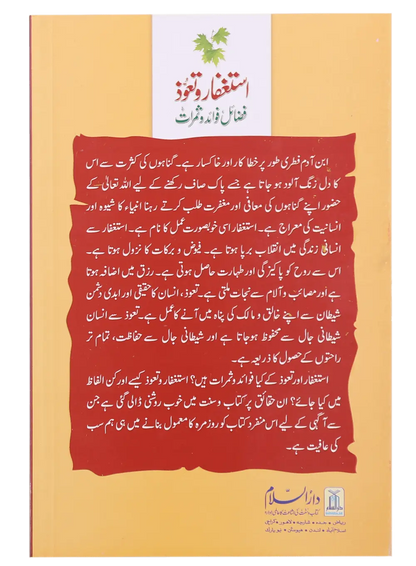 استغفار و تعوّذ
فضائل فوائد و ثمرات
ابن آدم فطری طور پر خطا کار اور خاکسار ہے۔ گناہوں کی کثرت سے اس
کا دل زنگ آلود ہو جاتا ہے جسے پاک صاف رکھنے کے لیے اللہ تعالیٰ کے
حضور اپنے گناہوں کی معافی اور مغفرت طلب کرتے رہنا انبیاء کا شیوہ اور
انسانیت کی معراج ہے۔ استغفار اسی خوبصورت عمل کا نام ہے۔ استغفار سے
انسانی زندگی میں انقلاب برپا ہوتا ہے۔ فیوض و برکات کا نزول ہوتا ہے۔
اس سے روح کو پاکیزگی اور طہارت حاصل ہوتی ہے۔ رزق میں اضافہ ہوتا
ہے اور مصائب و آلام سے نجات ملتی ہے۔ تعوذ، انسان کا حقیقی اور ابدی دشمن
شیطان سے اپنے خالق و مالک کی پناہ میں آنے کا عمل ہے۔ تعوذ سے انسان
شیطانی چال سے محفوظ ہو جاتا ہے اور شیطانی جال سے حفاظت، تمام تر
راحتوں کے حصول کا ذریعہ ہے۔
استغفار اور تعوذ کے کیا فوائد و ثمرات ہیں؟ استغفار و تعوذ کیسے اور کن الفاظ
میں کیا جائے؟ ان حقائق پر کتاب و سنت میں خوب روشنی ڈالی گئی ہے جن
سے آگہی کے لیے اس منفرد کتاب کو روزمرہ کا معمول بنانے میں ہی ہم سب
کی عافیت ہے۔
دارالسلام
کتاب و سنت کی اشاعت کا عالمی ادارہ
ریاض • جدہ • شارجہ • لاہور • کراچی
اسلام آباد • لندن • ہیوسٹن • نیو یارک